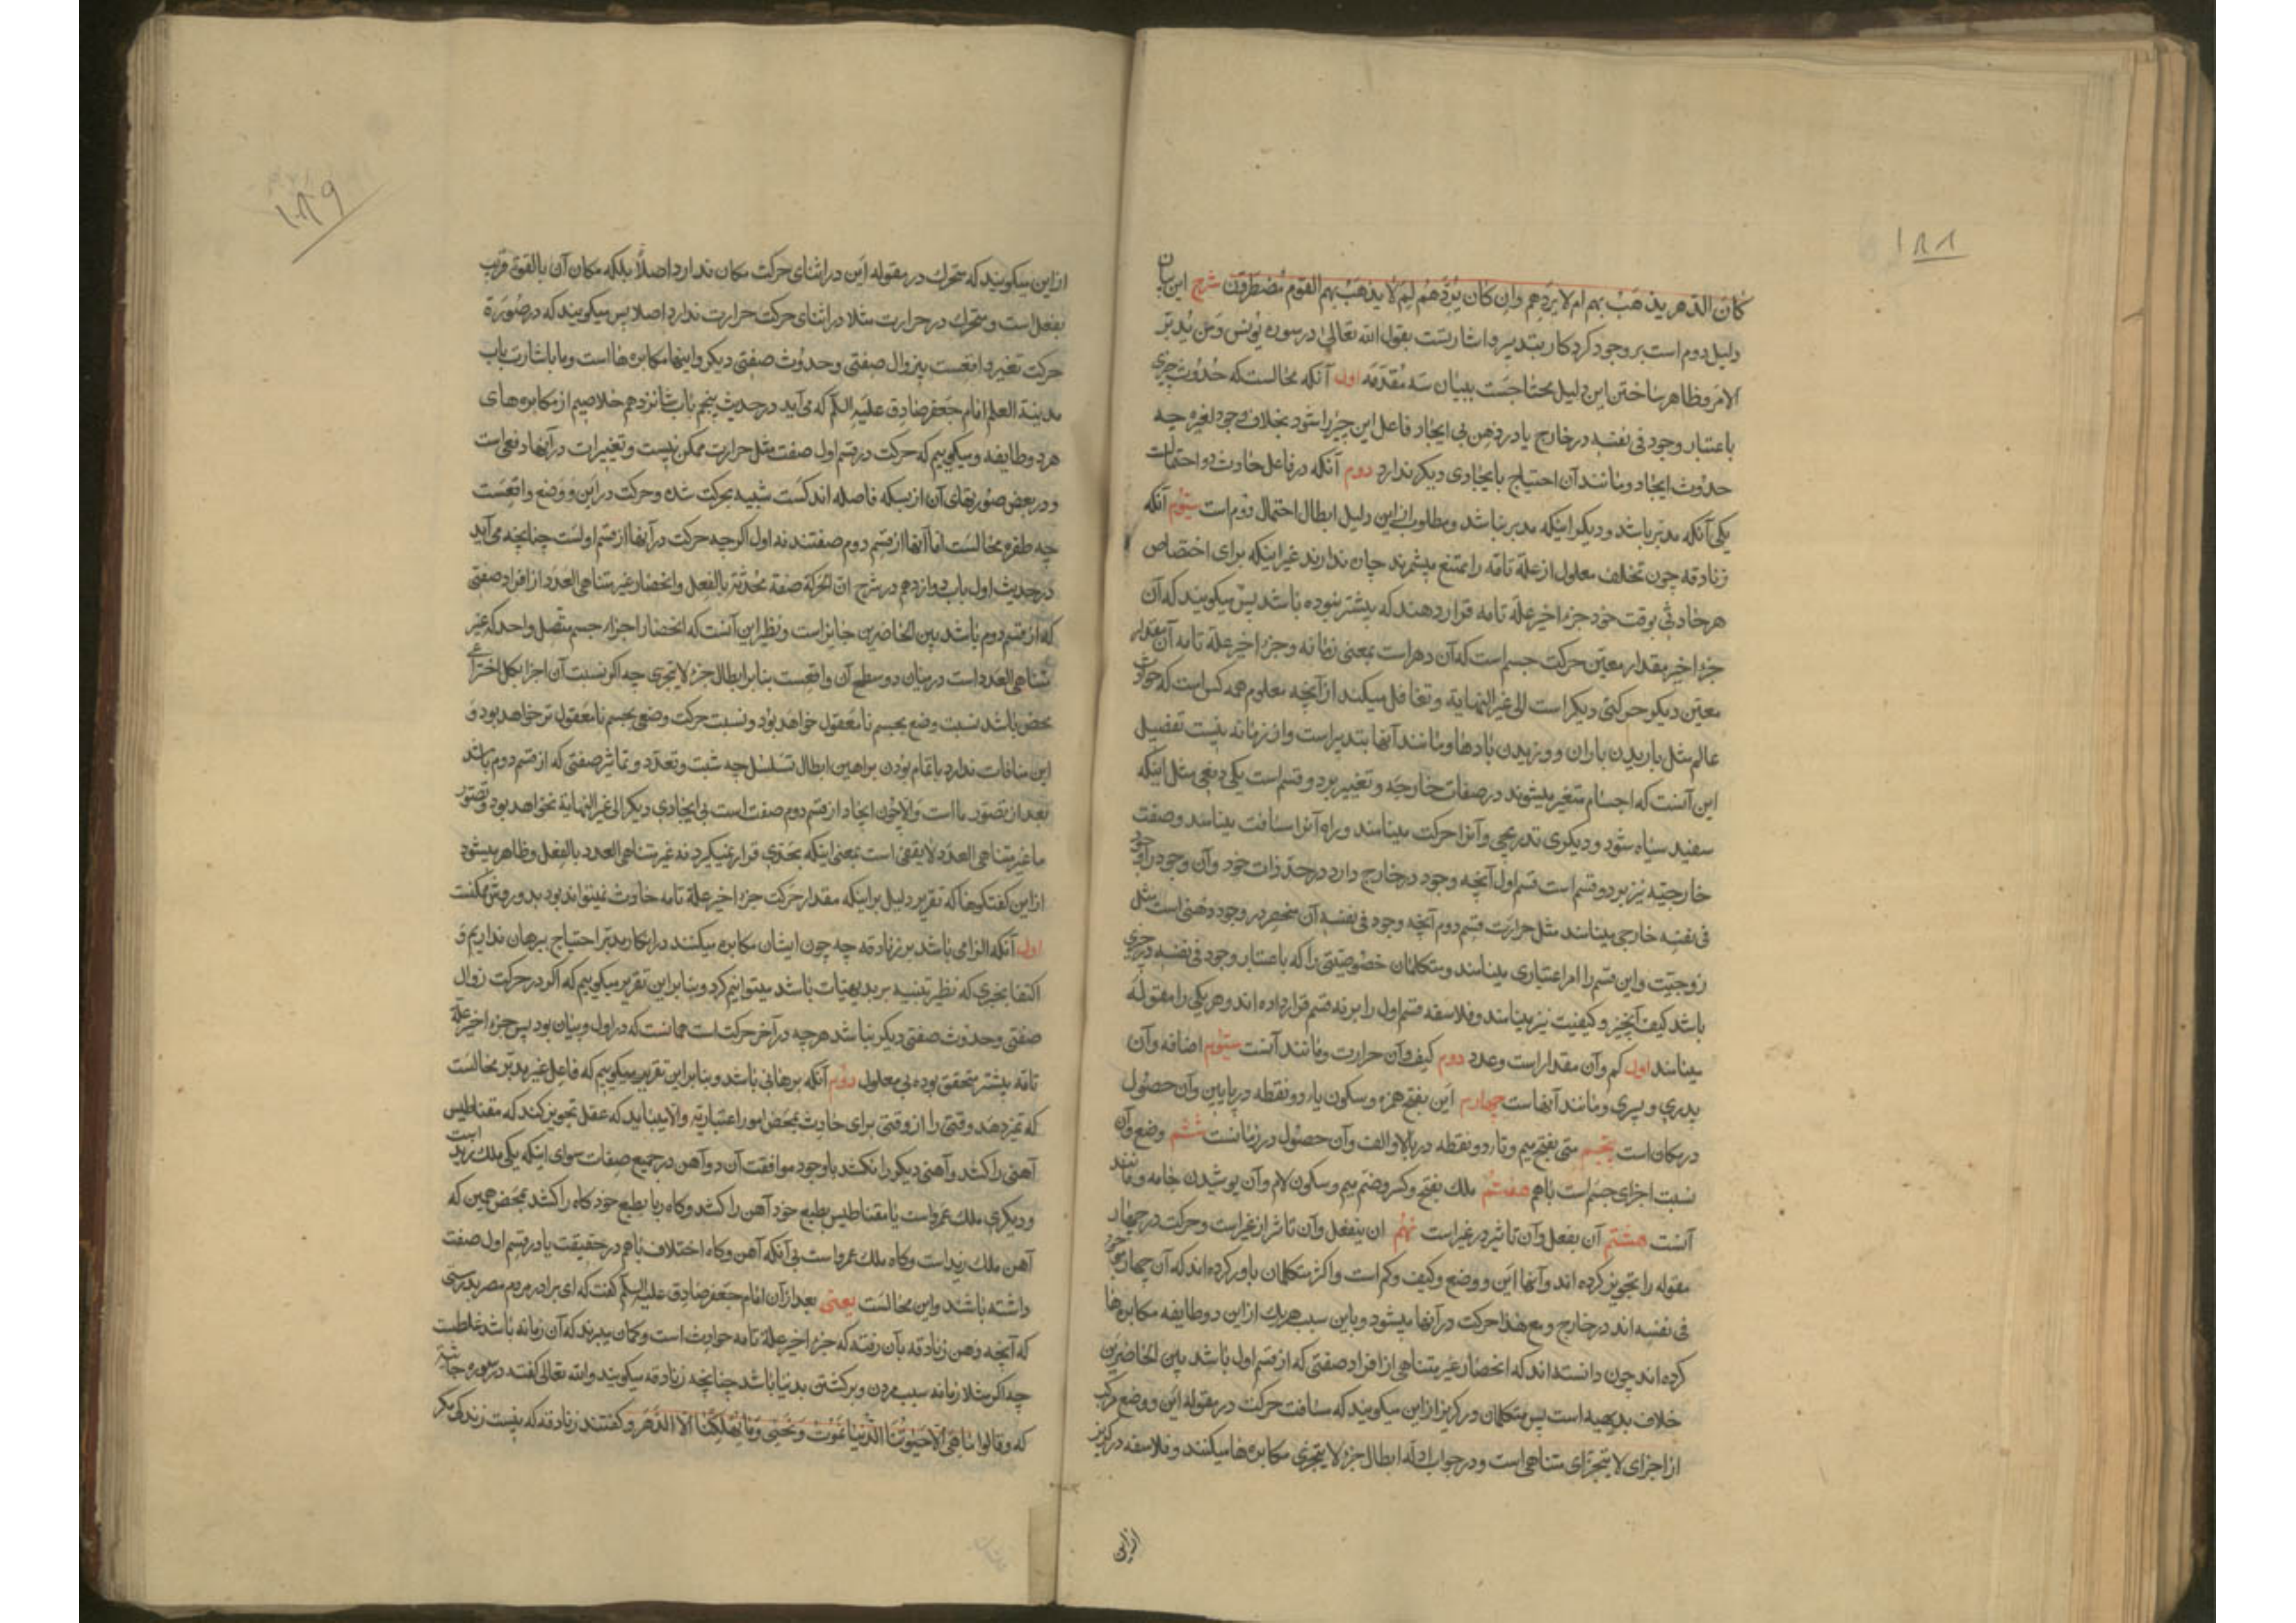 ۱۸۸
کان الدهر یذهب بهم لم لا یردهم وان کان یردهم لم لا یذهب بهم القوم مضطرون شرح این بیان
دلیل دوم است بر وجود کردکار بتدبیر و اشارتست بقول الله تعالی در سوره یونس ومن یدبر
الامر و ظاهر ساختن این دلیل محتاجست ببیان سه مقدمه اول آنکه محالست که حدوث چیزی
باعتبار وجود فی نفسه در خارج یا در ذهن بی ایجاد فاعل این چیز را شود بخلاف وجود لغیره چه
حدوث ایجاد و مانند آن احتیاج بایجادی دیکر ندارد دوم آنکه در فاعل حادث دو احتمالست
یکی آنکه مدبر باشد و دیکر اینکه مدبر نباشد و مطلوب از این دلیل ابطال احتمال دوم است سیوم آنکه
زنادقه چون تخلف معلول از علة تامه را ممتنع میشمرند چاره ندارند غیر اینکه برای اختصاص
هر حادثی بوقت خود جزء اخیر علة تامه قرار دهند که پیشتر نبوده باشد پس میکویند که آن
جزء اخیر مقدار معین حرکت جسم است که آن دهر است بمعنی زمانه و جزء اخیر علة تامه آن مقدار
معین دیکر حرکتی دیکر است الی غیر النهایة و تغافل میکنند از آنچه معلوم همه کس است که حوادث
عالم مثل باریدن باران و وزیدن بادها و مانند آنها بتدبیر است و از زمانه نیست تفصیل
این آنست که اجسام متغیر میشوند در صفات خارجیه و تغییر بر دو قسم است یکی دفعی مثل اینکه
سفید سیاه شود و دیکری تدریجی و آنرا حرکت مینامند و راه آنرا مسافت مینامند و صفت
خارجیه نیز بر دو قسم است قسم اول آنچه وجود در خارج دارد در حد ذات خود و آن وجود را وجود
فی نفسه خارجی مینامند مثل حرارت قسم دوم آنچه وجود فی نفسه آن منحصر در وجود ذهنی است مثل
زوجیت و این قسم را امر اعتباری مینامند و متکلمان خصوصیتی را که باعتبار وجود فی نفسه در چیزی
باشد کیف آنچیز و کیفیت نیز مینامند و فلاسفه قسم اول را بر نه قسم قرار داده اند و هر یکی را مقوله
مینامند اول کم و آن مقدار است و عدد دوم کیف و آن حرارت و مانند آنست سیوم اضافه و آن
پدری و پسری و مانند آنهاست چهارم این بفتح همزه و سکون یاء دو نقطه در پایین و آن حصول
در مکان است پنجم متی بفتح میم و تاء دو نقطه در بالا و الف و آن حصول در زمانست ششم وضع و آن
نسبت اجزای جسم است باهم هفتم ملک بفتح و کسر و ضم میم و سکون لام و آن پوشیدن جامه و مانند
آنست هشتم ان یفعل و آن تاثیر در غیر است نهم ان ینفعل و آن تاثر از غیر است و حرکت در چهار
مقوله را تجویز کرده اند و آنها این و وضع و کیف و کم است و اکثر متکلمان باور کرده اند که آن چهار
فی نفسه اند در خارج و مع هذا حرکت در آنها میشود و باین سبب هر یک از این دو طایفه مکابره ها
کرده اند چون دانسته اند که انحصار غیر متناهی از افراد صفتی که از قسم اول باشد بین الحاضرین
خلاف بدیهه است پس متکلمان در کریز از این میکویند که مسافت حرکت در مقوله این و وضع مرکب
از اجزای لا یتجزای متناهی است و در جواب ادله ابطال جزء لا یتجزی مکابره ها میکنند و فلاسفه در کریز
از این
۱۸۹
از این میکویند که متحرک در مقوله این در اثنای حرکت مکان ندارد اصلا بلکه مکان آن بالقوة قریب
بفعل است و متحرک در حرارت مثلا در اثنای حرکت حرارت ندارد اصلا پس میکویند که در صورة
حرکت تغیر واقعست بیزوال صفتی و حدوث صفتی دیکر و اینها مکابره هااست و ما باشارت باب
مدینة العلم امام جعفر صادق علیه السلم که می آید در حدیث پنجم باب شانزدهم خلاصیم از مکابره های
هر دو طایفه و میکوییم که حرکت در قسم اول صفت مثل حرارت ممکن نیست و تغییرات در آنها دفعی است
و در بعض صورتهای آن از بسکه فاصله اندکست شبیه بحرکت شده و حرکت در این و وضع واقعست
چه طفره محالست اما آنها از قسم دوم صفتند نه اول اکرچه حرکت در آنها از قسم اولست چنانچه می آید
در حدیث اول باب دوازدهم در شرح ان الحرکة صفة محدثة بالفعل و انحصار غیر متناهی العدد از افراد صفتی
که از قسم دوم باشد بین الحاضرین جایز است و نظیر این آنست که انحصار اجزاء جسم متصل واحد که غیر
متناهی العدد است در میان دو سطح آن واقعست بنابر ابطال جزء لا یتجزی چه اکر نسبت آن اجزا بکل اختراعی
محض باشد نسبت وضع بجسم نامعقول خواهد بود و نسبت حرکت وضعی بجسم نامعقول تر خواهد بود و
این منافات ندارد باتمام بودن براهین ابطال تسلسل چه ثبت و تعدد و تمایز صفتی که از قسم دوم باشد
بعد از تصور ما است والا چون ایجاد از قسم دوم صفت است بی ایجادی دیکر الی غیر النهایة نخواهد بود و تصور
ما غیر متناهی العدد لا یقفی است بمعنی اینکه بحدی قرار نمیکیرد نه غیر متناهی العدد بالفعل و ظاهر میشود
از این کفتکوها که تقریر دلیل بر اینکه مقدار حرکت جزء اخیر علة تامه حادث نمیتواند بود بدو روش ممکنست
اول آنکه الزامی باشد بر زنادقه چه چون ایشان مکابره میکنند در انکار مدبر احتیاج ببرهان نداریم و
اکتفا بچیزی که نظیر تنبیه بر بدیهیات باشد میتوانیم کرد و بنابر این تقریر میکوییم که اکر در حرکت زوال
صفتی و حدوث صفتی دیکر نباشد هرچه در آخر حرکت است همانست که در اول و میان بود پس جزء اخیر علة
تامه پیشتر متحقق بوده بی معلول دوم آنکه برهانی باشد و بنابر این تقریر میکوییم که فاعل غیر مدبر محالست
که تمیز دهد وقتی را از وقتی برای حادث بمحض امور اعتباریه والا میباید که عقل تجویز کند که مقناطیس
آهنی را کشد و آهنی دیکر را نکشد باوجود موافقت آن دو آهن در جمیع صفات سوای اینکه یکی ملک زید است
و دیکری ملک عمرو است یا مقناطیس بطبع خود آهن را کشد و کاه ربا بطبع خود کاه را کشد بمحض همین که
آهن ملک زید است و کاه ملک عمرو است بی آنکه آهن و کاه اختلاف باهم در حقیقت یا در قسم اول صفت
داشته باشند و این محالست یعنی بعد از آن امام جعفر صادق علیه السلم کفت که ای برادر مردم مصر بدرستی
که آنچه ذهن زنادقه بآن رفته که جزء اخیر علة تامه حوادث است و کمان میبرند که آن زمانه باشد غلطست
چه اکر مثلا زمانه سبب مردن و برکشتن بدنیا باشد چنانچه زنادقه میکویند و الله تعالی کفته در سوره جاثیه
که وقالوا ما هی الا حیوتنا الدنیا نموت و نحیی وما یهلکنا الا الدهر و کفتند زنادقه که نیست زندکی مکر